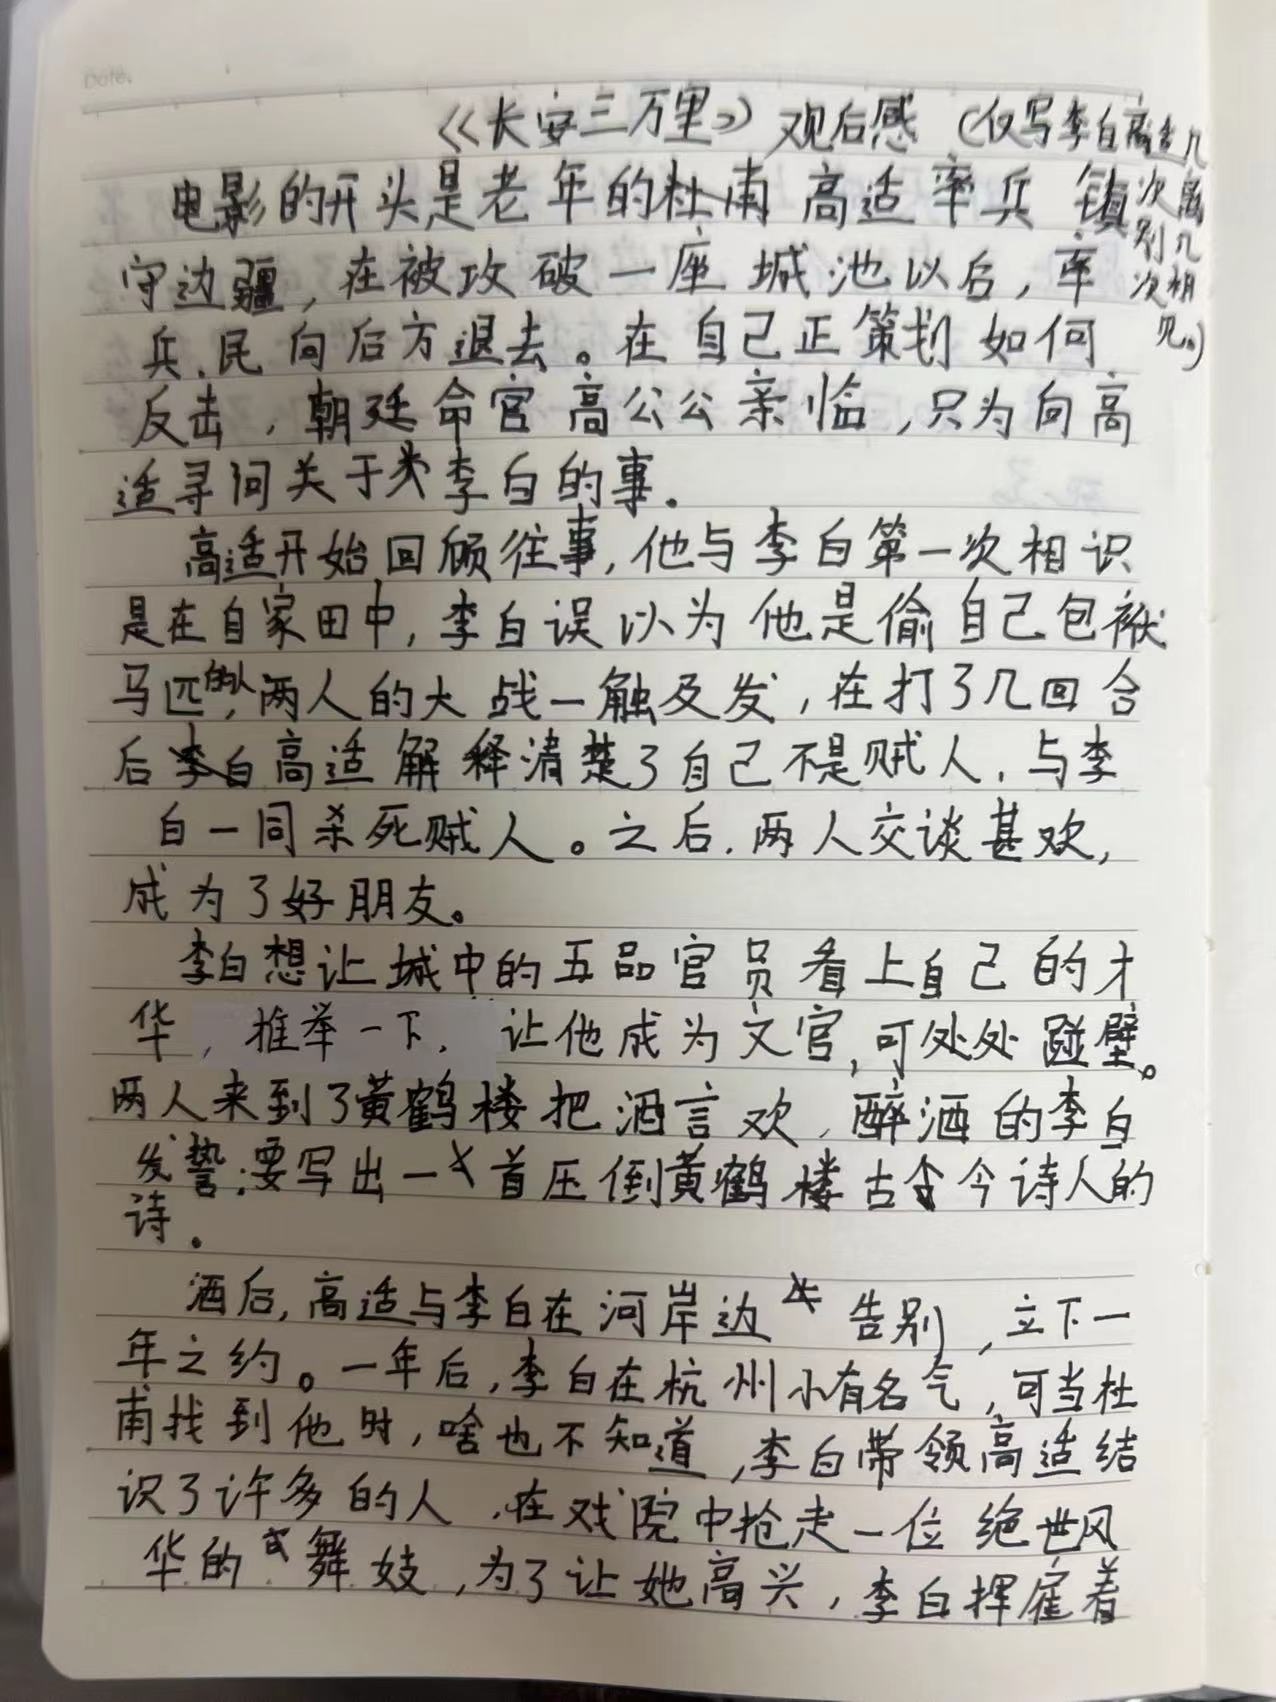 Date.
《长安三万里》观后感（仅写李白高适几
次离
别几
次相
见。）
电影的开头是老年的杜甫高适率兵镇
守边疆，在被攻破一座城池以后，率
兵、民向后方退去。在自己正策划如何
反击，朝廷命官高公公亲临，只为向高
适寻问关于李白的事。
高适开始回顾往事，他与李白第一次相识
是在自家田中，李白误以为他是偷自己包袱
马匹的人，两人的大战一触及发，在打了几回合
后李白高适解释清楚了自己不是贼人，与李
白一同杀死贼人。之后，两人交谈甚欢，
成为了好朋友。
李白想让城中的五品官员看上自己的才
华，推举一下，让他成为文官，可处处碰壁。
两人来到了黄鹤楼把酒言欢，醉酒的李白
发誓：要写出一首压倒黄鹤楼古今诗人的
诗。
酒后，高适与李白在河岸边告别，立下一
年之约。一年后，李白在杭州小有名气，可当杜
甫找到他时，啥也不知道，李白带领高适结
识了许多的人，在戏院中抢走一位绝世风
华的舞妓，为了让她高兴，李白挥雇着